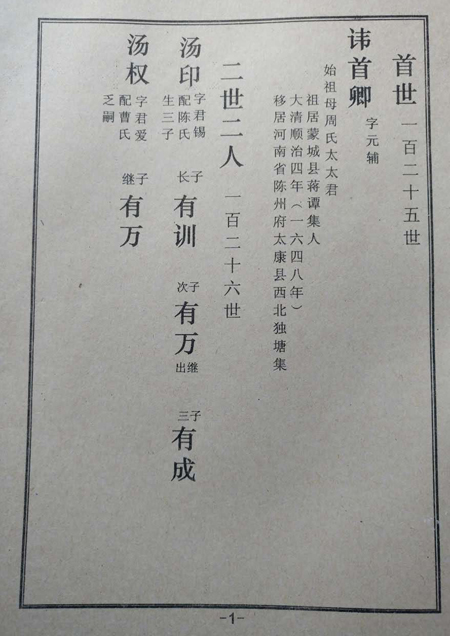 首世 一百二十五世
讳首卿 字元辅
始祖母周氏太太君
祖居蒙城县蒋谭集人
大清顺治四年（一六四八年）
移居河南省陈州府太康县西北独塘集
二世二人 一百二十六世
汤印 字君锡 配陈氏 生三子 长子 有训 次子 有万 出继 三子 有成
汤权 字君爱 配曹氏 乏嗣 继子 有万
-1-